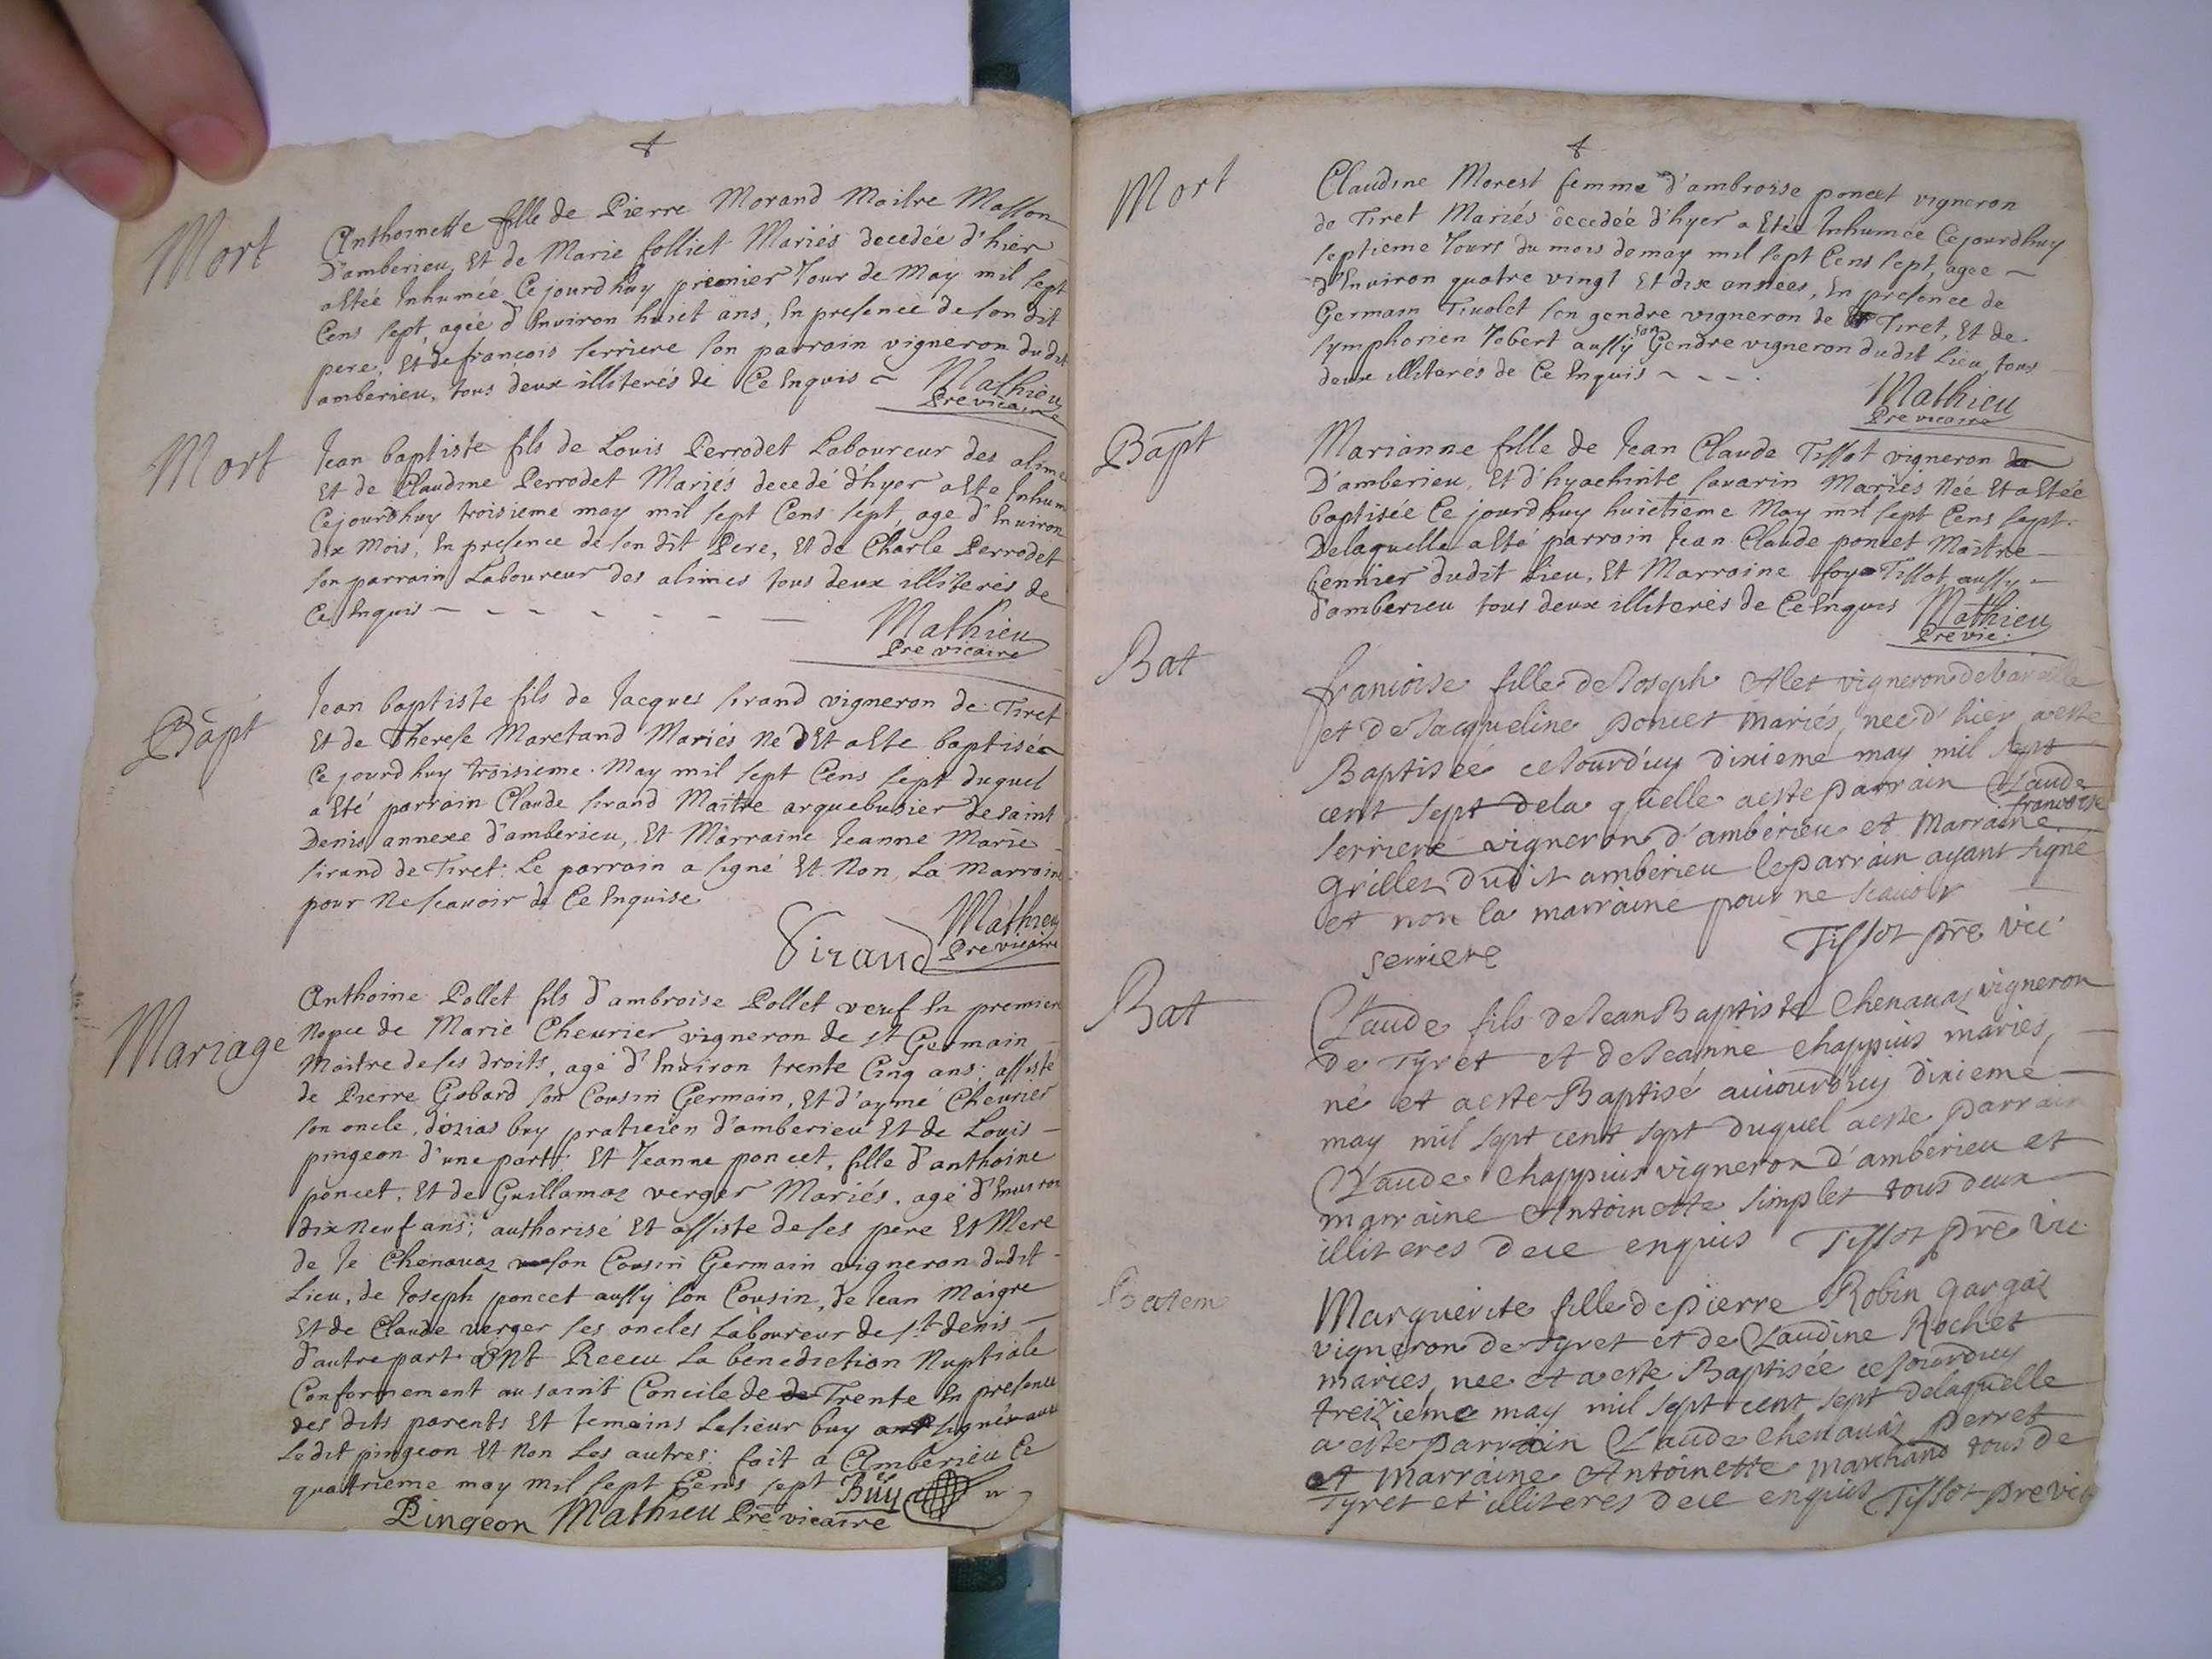 Mort
Anthoinette fille de Pierre Morand Maitre Masson
D'amberieu, Et de Marie folliet Mariés decedée d'hier
a Etéé Inhumée Cejourdhuy premier Jour de May mil sept
Cens sept, agée d'Environ huict ans, En presence de son dit
pere, Et de françois serriere son parrain vigneron dudit
amberieu, tous deux illiterés de Ce Enquis
Mathieu
Pre vicaire
Mort
Jean baptiste fils de Louis Perrodet Laboureur des alimes
Et de Claudine Perrodet Mariés decedé d'hyer a Eté Inhum
Cejourdhuy troisieme may mil sept Cens sept, agé d'Environ
dix Mois, En presence de son dit Pere, Et de Charle Perrodet
son parrain Laboureur des alimes tous deux illiterés de
Ce Enquis
Mathieu
Pre vicaire
Bapt
Jean baptiste fils de Jacques sirand vigneron de Tiret
Et de Therese Maretand Mariés Né Et a Eté baptisé
Ce jourdhuy troisieme May mil sept Cens sept duquel
a Eté parrain Claude sirand Maitre arquebusier de saint
Denis annexe d'amberieu, Et Marraine Jeanne Marie
sirand de Tiret. Le parrain a signé Et Non La Marraine
pour Ne scauoir de Ce Enquise
Sirand
Mathieu
Pre vicaire
Mariage
Anthoine Pollet fils d'ambroise Pollet veuf En premiere
Nopce de Marie Cheurier vigneron de st Germain
Maitre de ses droits, agé d'Environ trente Cinq ans; assisté
de Pierre Gobard son Cousin Germain, Et d'aymé Cheurier
son oncle, d'ozias buy praticien d'amberieu Et de Louis
pingeon d'une part; Et Jeanne poncet, fille d'anthoine
poncet, Et de Guillamaz verger Mariés, agé d'Environ
dix Neuf ans; authorisé Et assiste de ses pere Et Mere
de Je Chenauaz son Cousin Germain vigneron dudit
Lieu, de Joseph poncet aussy son Cousin, de Jean Maigre
Et de Claude verger ses oncles Laboureur de st denis
d'autre part ont Receu La benediction Nuptiale
Conformement au saint Concile de de Trente En presence
des dits parents Et temoins Le sieur buy ont signé auec
Ledit pingeon Et Non Les autres: fait a Amberieu Ce
quatrieme may mil sept Cens sept Buy
Pingeon Mathieu Pre vicaire
Mort
Claudine Morest femme d'ambroise poncet vigneron
de Tiret Mariés decedée d'hyer a Etéé Inhumée Cejourdhuy
septieme Jours du mois de may mil sept Cens sept, agee
d'Environ quatre vingt Et dix années, En presence de
Germain Tiuolet son gendre vigneron de Tiret, Et de
symphorien Jobert aussy son Gendre vigneron dudit Lieu, tous
deux illiterés de Ce Enquis
Mathieu
Pre vicaire
Bapt
Marianne fille de Jean Claude Tissot vigneron
D'amberieu, Et d'hyachinte sauarin Mariés Née Et a Etée
baptisée Ce jourdhuy huictieme May mil sept Cens sept.
De laquelle a Eté parrain Jean Claude poncet Maitre
Cennier dudit Lieu, Et Marraine foy Tissot aussy
d'amberieu tous deux illiterés de Ce Enquis
Mathieu
Pre vic.
Bat
francoise fille de Joseph Alet vigneron de
et de Jacqueline poncet mariés, nee d'hier a este
Baptisée ce Jourd'uy dixieme may mil sept
cent sept de la quelle a este parrain Claude
serriere vigneron d'amberieu et Marraine francoise
Grillet dudit amberieu le parrain ayant signe
et non la marraine pour ne scauoir
serriere
Tissot pre vic
Bat
Claude fils de Jean Baptiste Chenauaz vigneron
de Tyret et de Jeanne Chappuis mariés,
né et a este Baptisé auiourdhuy dixieme
may mil sept cent sept duquel a este parrain
Claude Chappuis vigneron d'amberieu et
marraine Antoinette simplet tous deux
illiteres de ce enquis Tissot pre vic
Batem
Marguerite fille de pierre Robin gargoi
vigneron de Tyret et de Claudine Rochet
mariés, nee et a este Baptisée ce Jourduy
treizieme may mil sept cent sept de laquelle
a este parrain Claude chenauas perret
et Marraine Antoinette marchand tous de
Tyret et illiteres de ce enquis Tissot pre vic